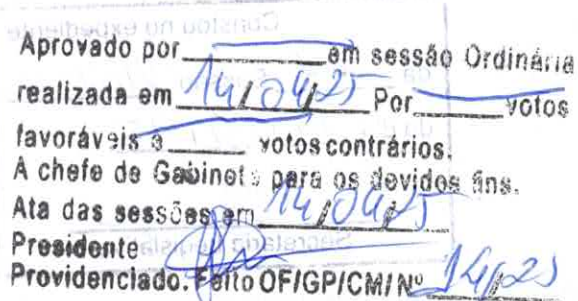 Aprovado por ______ em sessão Ordinária
realizada em 14/04/25 Por ______ votos
favoráveis e ______ votos contrários.
A chefe de Gabinete para os devidos fins.
Ata das sessões em 14/04/25
Presidente
Providenciado. Feito OF/GP/CM/Nº 14/25